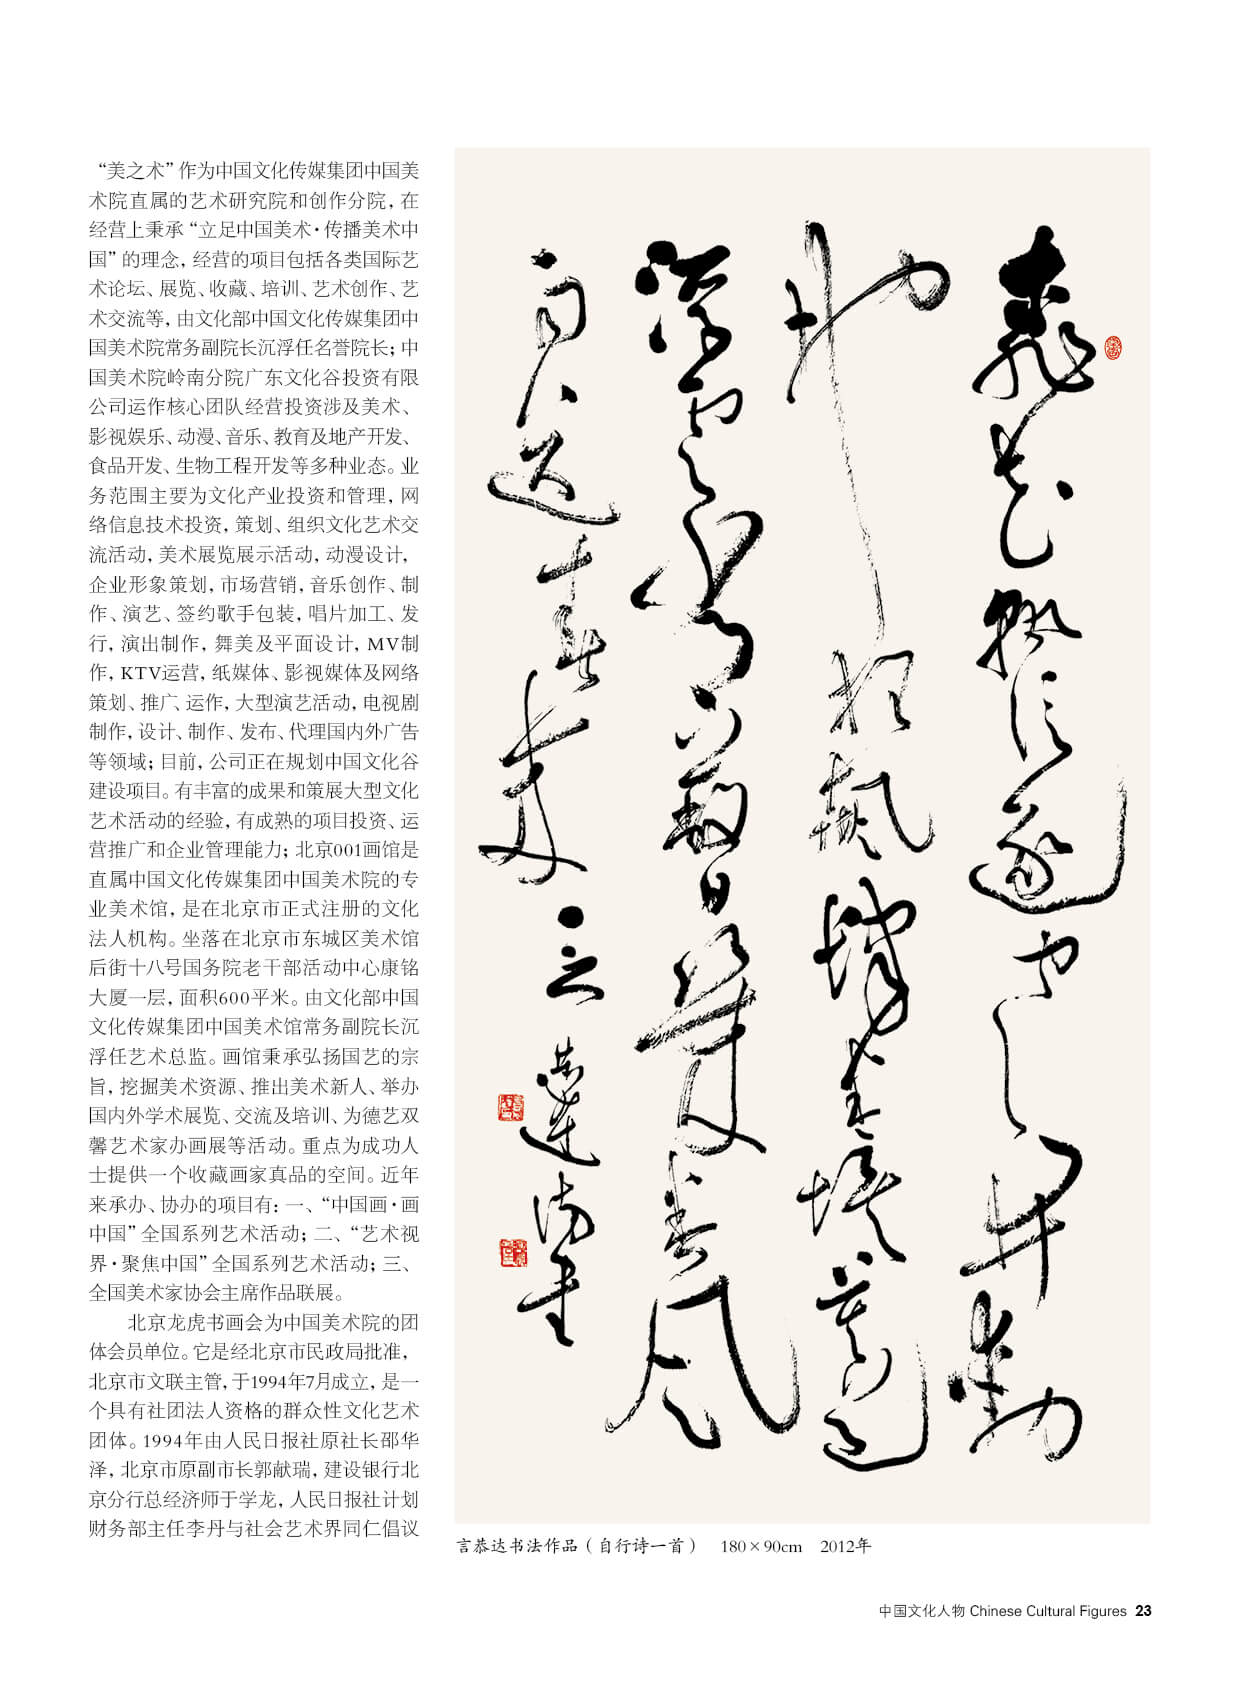 “美之术”作为中国文化传媒集团中国美
术院直属的艺术研究院和创作分院，在
经营上秉承“立足中国美术·传播美术中
国”的理念，经营的项目包括各类国际艺
术论坛、展览、收藏、培训、艺术创作、艺
术交流等，由文化部中国文化传媒集团中
国美术院常务副院长沉浮任名誉院长；中
国美术院岭南分院广东文化谷投资有限
公司运作核心团队经营投资涉及美术、
影视娱乐、动漫、音乐、教育及地产开发、
食品开发、生物工程开发等多种业态。业
务范围主要为文化产业投资和管理，网
络信息技术投资，策划、组织文化艺术交
流活动，美术展览展示活动，动漫设计，
企业形象策划，市场营销，音乐创作、制
作、演艺、签约歌手包装，唱片加工、发
行，演出制作，舞美及平面设计，MV制
作，KTV运营，纸媒体、影视媒体及网络
策划、推广、运作，大型演艺活动，电视剧
制作，设计、制作、发布、代理国内外广告
等领域；目前，公司正在规划中国文化谷
建设项目。有丰富的成果和策展大型文化
艺术活动的经验，有成熟的项目投资、运
营推广和企业管理能力；北京001画馆是
直属中国文化传媒集团中国美术院的专
业美术馆，是在北京市正式注册的文化
法人机构。坐落在北京市东城区美术馆
后街十八号国务院老干部活动中心康铭
大厦一层，面积600平米。由文化部中国
文化传媒集团中国美术馆常务副院长沉
浮任艺术总监。画馆秉承弘扬国艺的宗
旨，挖掘美术资源、推出美术新人、举办
国内外学术展览、交流及培训、为德艺双
馨艺术家办画展等活动。重点为成功人
士提供一个收藏画家真品的空间。近年
来承办、协办的项目有：一、“中国画·画
中国”全国系列艺术活动；二、“艺术视
界·聚焦中国”全国系列艺术活动；三、
全国美术家协会主席作品联展。
北京龙虎书画会为中国美术院的团
体会员单位。它是经北京市民政局批准，
北京市文联主管，于1994年7月成立，是一
个具有社团法人资格的群众性文化艺术
团体。1994年由人民日报社原社长邵华
泽，北京市原副市长郭献瑞，建设银行北
京分行总经济师于学龙，人民日报社计划
财务部主任李丹与社会艺术界同仁倡议
言恭达书法作品（自行诗一首） 180×90cm 2012年
中国文化人物 Chinese Cultural Figures 23